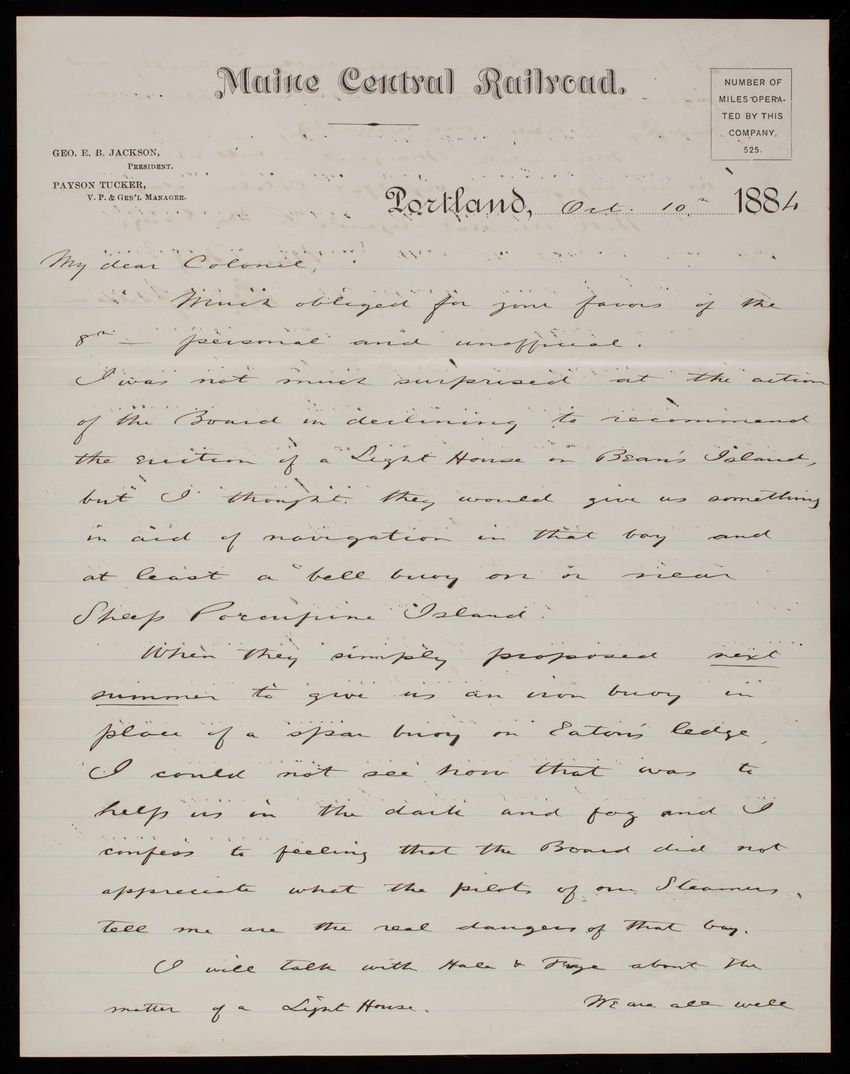 Maine Central Railroad.
NUMBER OF
MILES OPERA-
TED BY THIS
COMPANY,
525.
GEO. E. B. JACKSON,
PRESIDENT.
PAYSON TUCKER,
V. P. & GEN'L MANAGER.
Portland, Oct. 10th 1884
My dear Colonel,
Much obliged for your favors of the
8th — personal and unofficial.
I was not much surprised at the action
of the Board in declining to recommend
the erection of a Light House on Bean's Island,
but I thought they would give us something
in aid of navigation in that bay and
at least a bell buoy on or near
Sheep Porcupine Island.
When they simply proposed next
summer to give us an iron buoy in
place of a spar buoy on Eaton's ledge,
I could not see how that was to
help us in the dark and fog and I
confess to feeling that the Board did not
appreciate what the pilots of our Steamers
tell me are the real dangers of that bay.
I will talk with Hale & Frye about the
matter of a Light House. We are all well